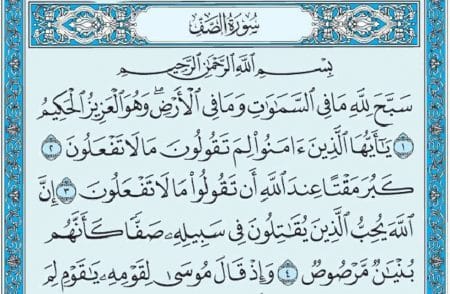 سُورَةُ الصَّفِّ
بِسْمِ اللَّهِ الرَّحْمَٰنِ الرَّحِيمِ
سَبَّحَ لِلَّهِ مَا فِي السَّمَاوَاتِ وَمَا فِي الْأَرْضِ ۖ وَهُوَ الْعَزِيزُ الْحَكِيمُ
١ يَا أَيُّهَا الَّذِينَ ءَامَنُوا لِمَ تَقُولُونَ مَا لَا تَفْعَلُونَ ٢
كَبُرَ مَقْتًا عِندَ اللَّهِ أَن تَقُولُوا مَا لَا تَفْعَلُونَ ٣ إِنَّ
اللَّهَ يُحِبُّ الَّذِينَ يُقَاتِلُونَ فِي سَبِيلِهِ صَفًّا كَأَنَّهُم
بُنْيَانٌ مَّرْصُوصٌ ٤ وَإِذْ قَالَ مُوسَىٰ لِقَوْمِهِ يَا قَوْمِ لِمَ